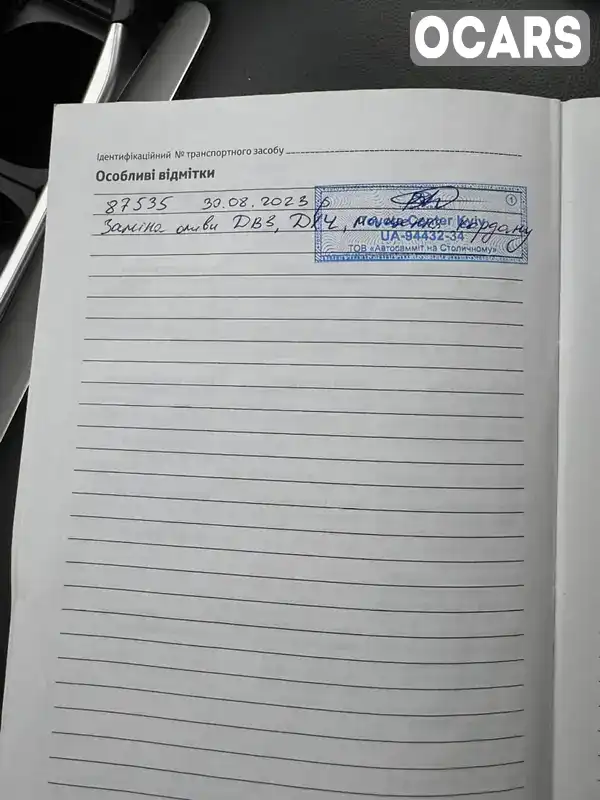 OCARS
Ідентифікаційний № транспортного засобу
Особливі відмітки
87535 30.08.2023 р
Заміна оливи ДВЗ, кардану
Toyota Center Kyiv
UA-94432-34
ТОВ «Автосамміт на Столичному»
1